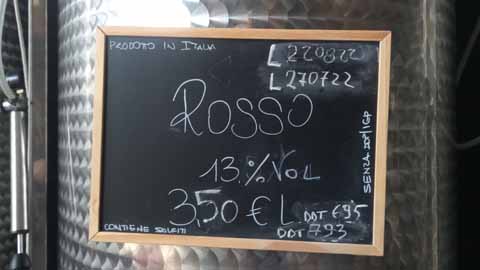 PRODOTTO IN ITALIA
L 220822
L 270722
ROSSO
13.%VOL
3,50 € L
DDT 695
DDT 793
CONTIENE SOLFITI
SENZA DOP/IGP